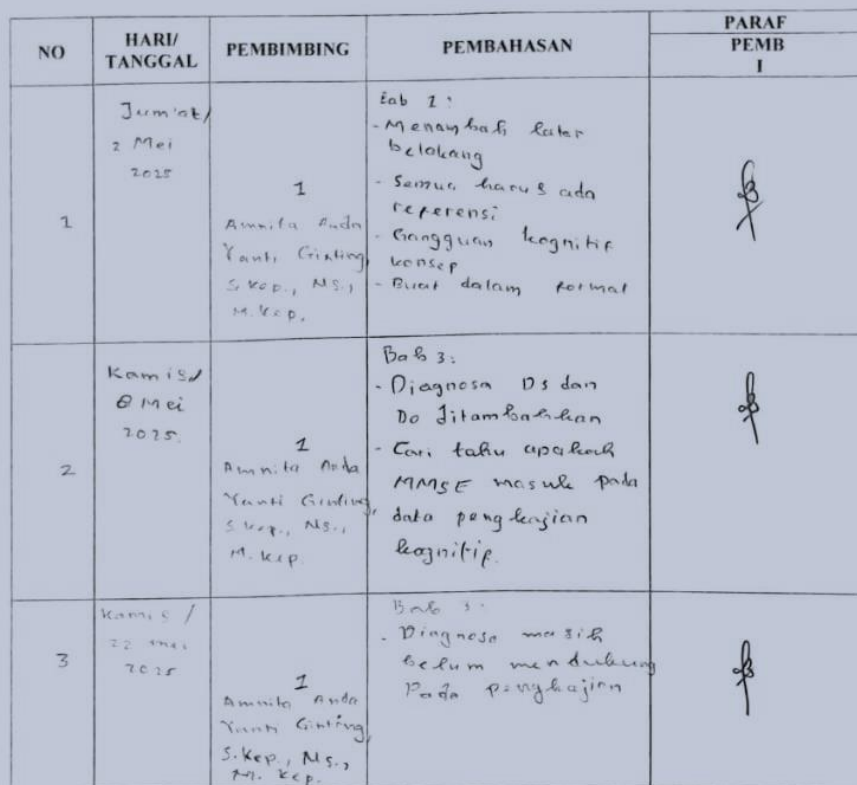 NO
HARI/
TANGGAL
PEMBIMBING
PEMBAHASAN
PARAF
PEMB
I
1
Jum'at/
2 Mei
2025
1
Amnita Anda
Yanti Ginting,
S.Kep., Ns.,
M.Kep.
Bab 1:
- Menambah latar
belakang
- Semua harus ada
referensi
- Gangguan kognitif
konsep
- Buat dalam format
2
Kamis/
8 Mei
2025.
1
Amnita Anda
Yanti Ginting,
S.Kep., Ns.,
M.Kep.
Bab 3:
- Diagnosa Ds dan
Do ditambahkan
- Cari tahu apakah
MMSE masuk pada
data pengkajian
kognitif.
3
Kamis/
22 Mei
2025
1
Amnita Anda
Yanti Ginting,
S.Kep., Ns.,
M. Kep.
Bab 3:
- Diagnosa masih
belum mendukung
Pada pengkajian